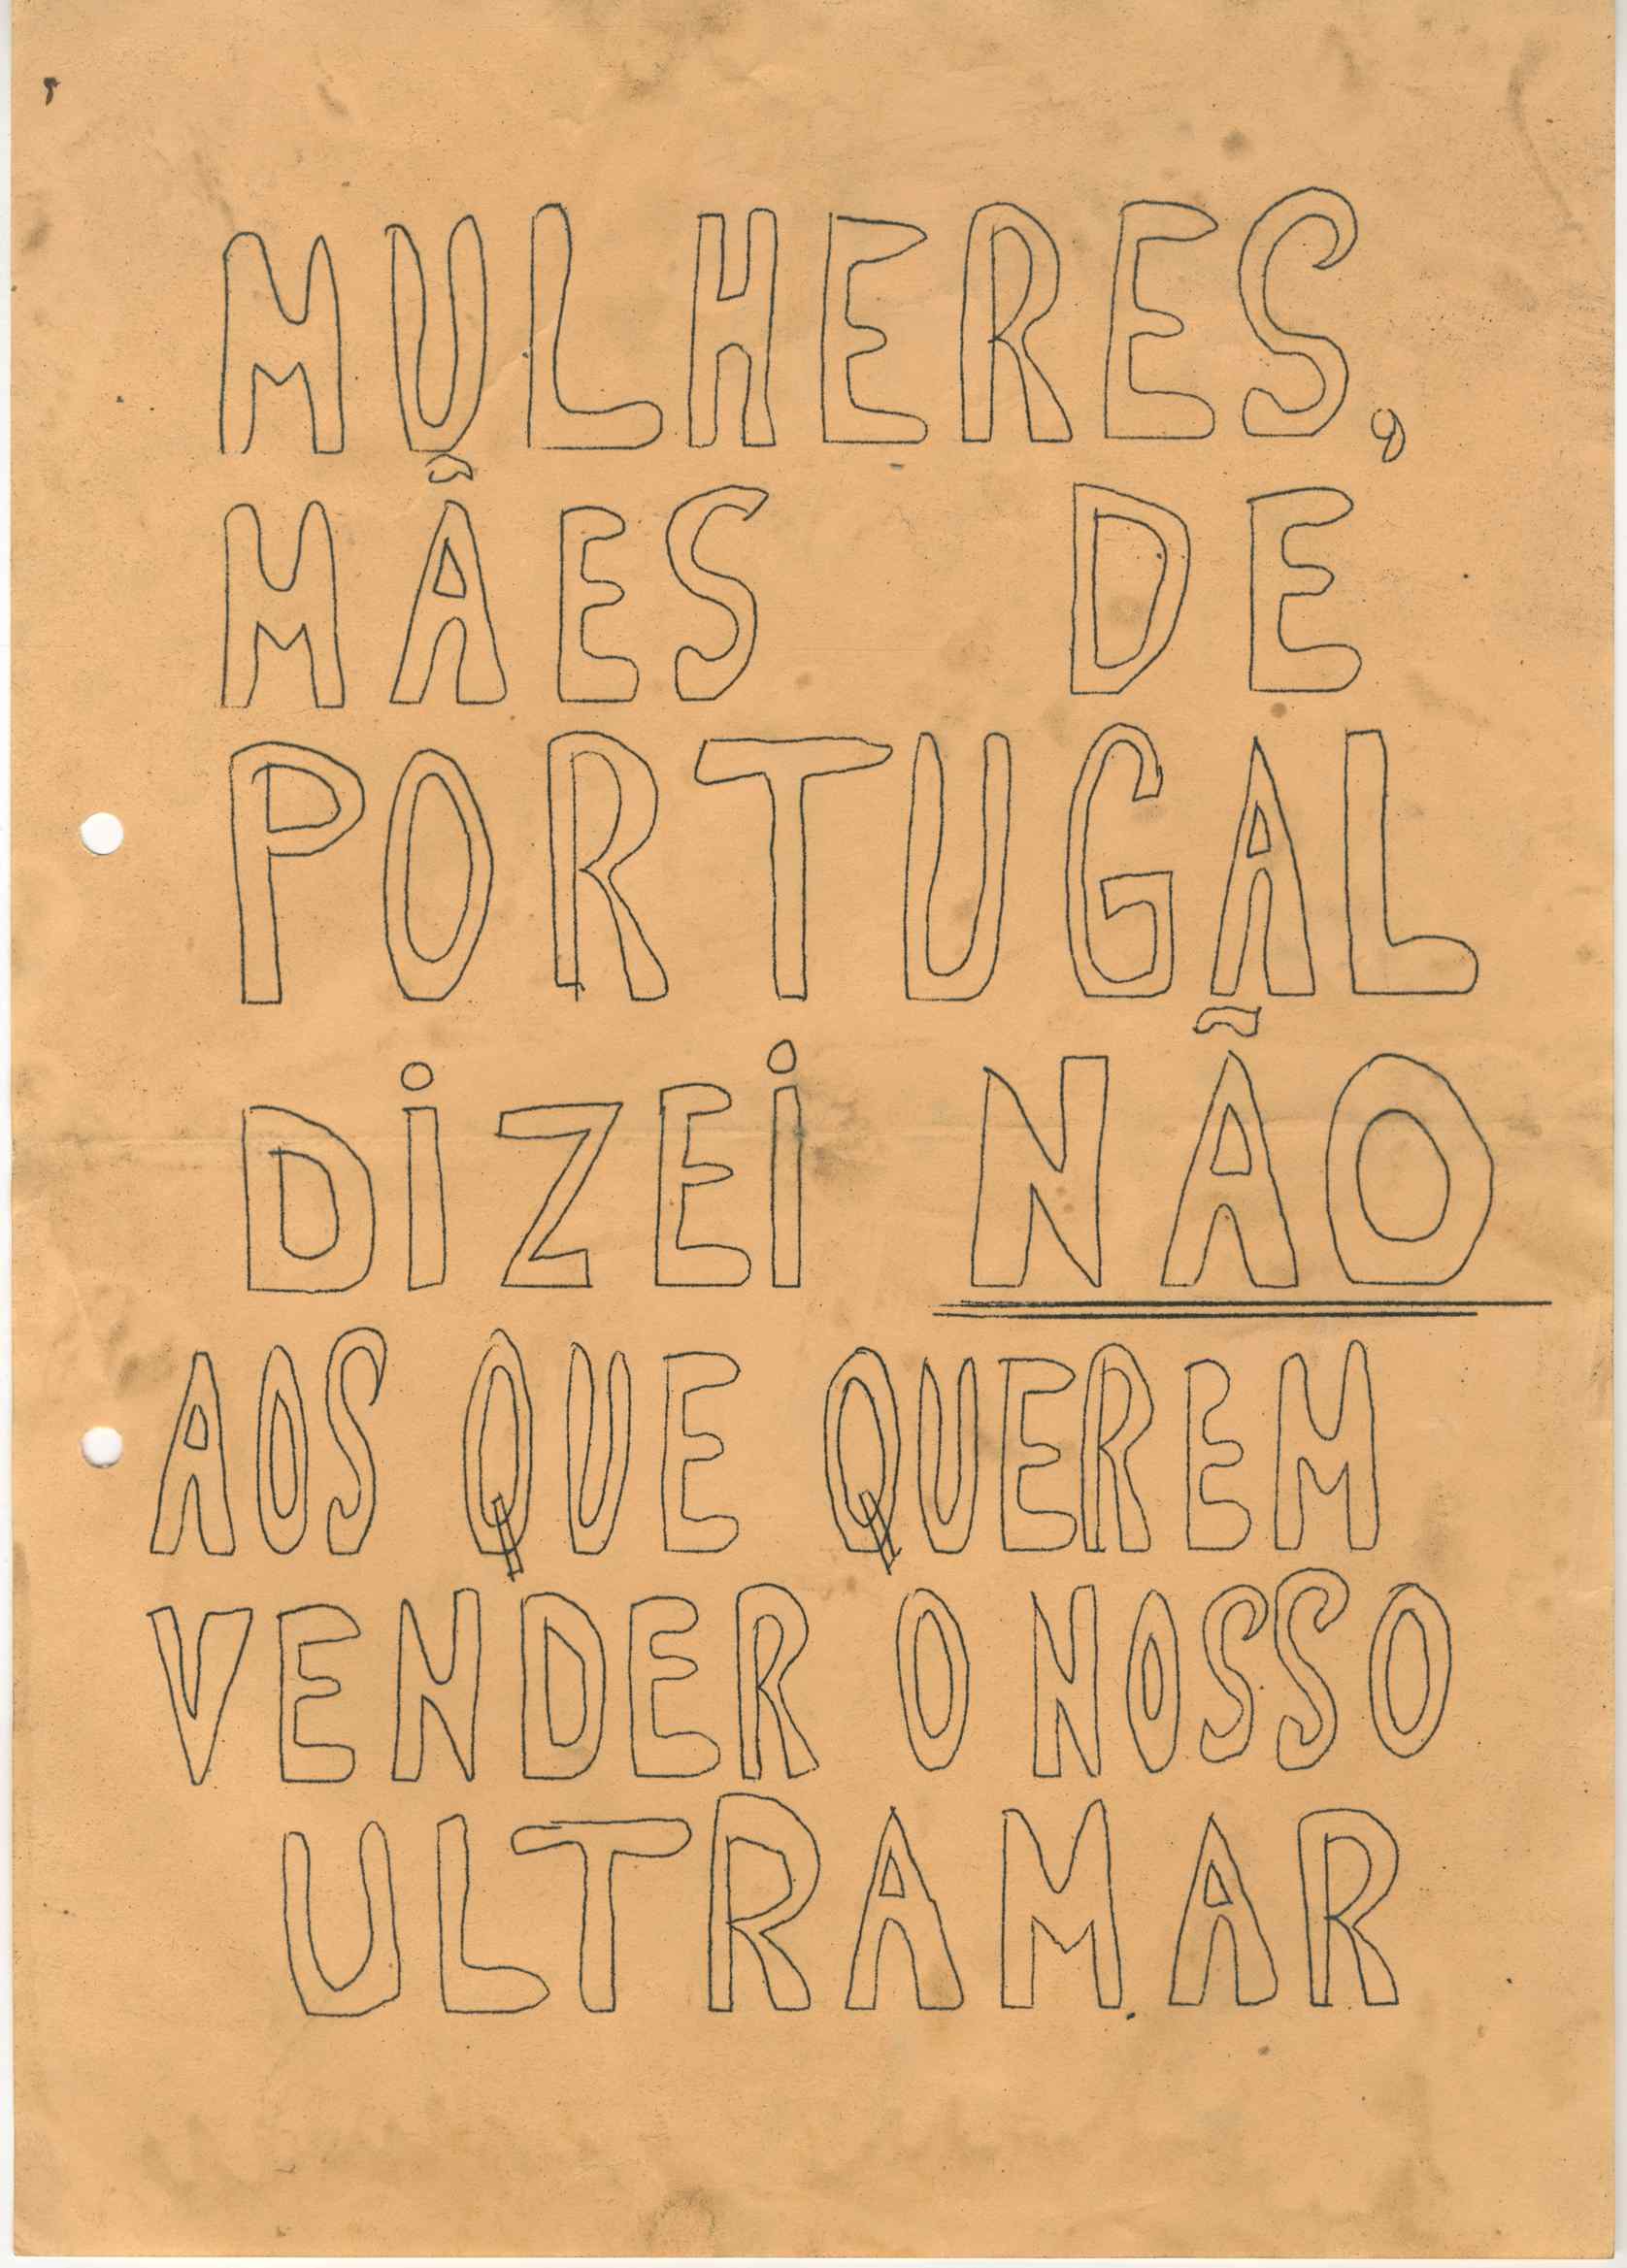 MULHERES,
MÃES DE
PORTUGAL
DiZEi NÃO
AOS QUE QUEREM
VENDER O NOSSO
ULTRAMAR